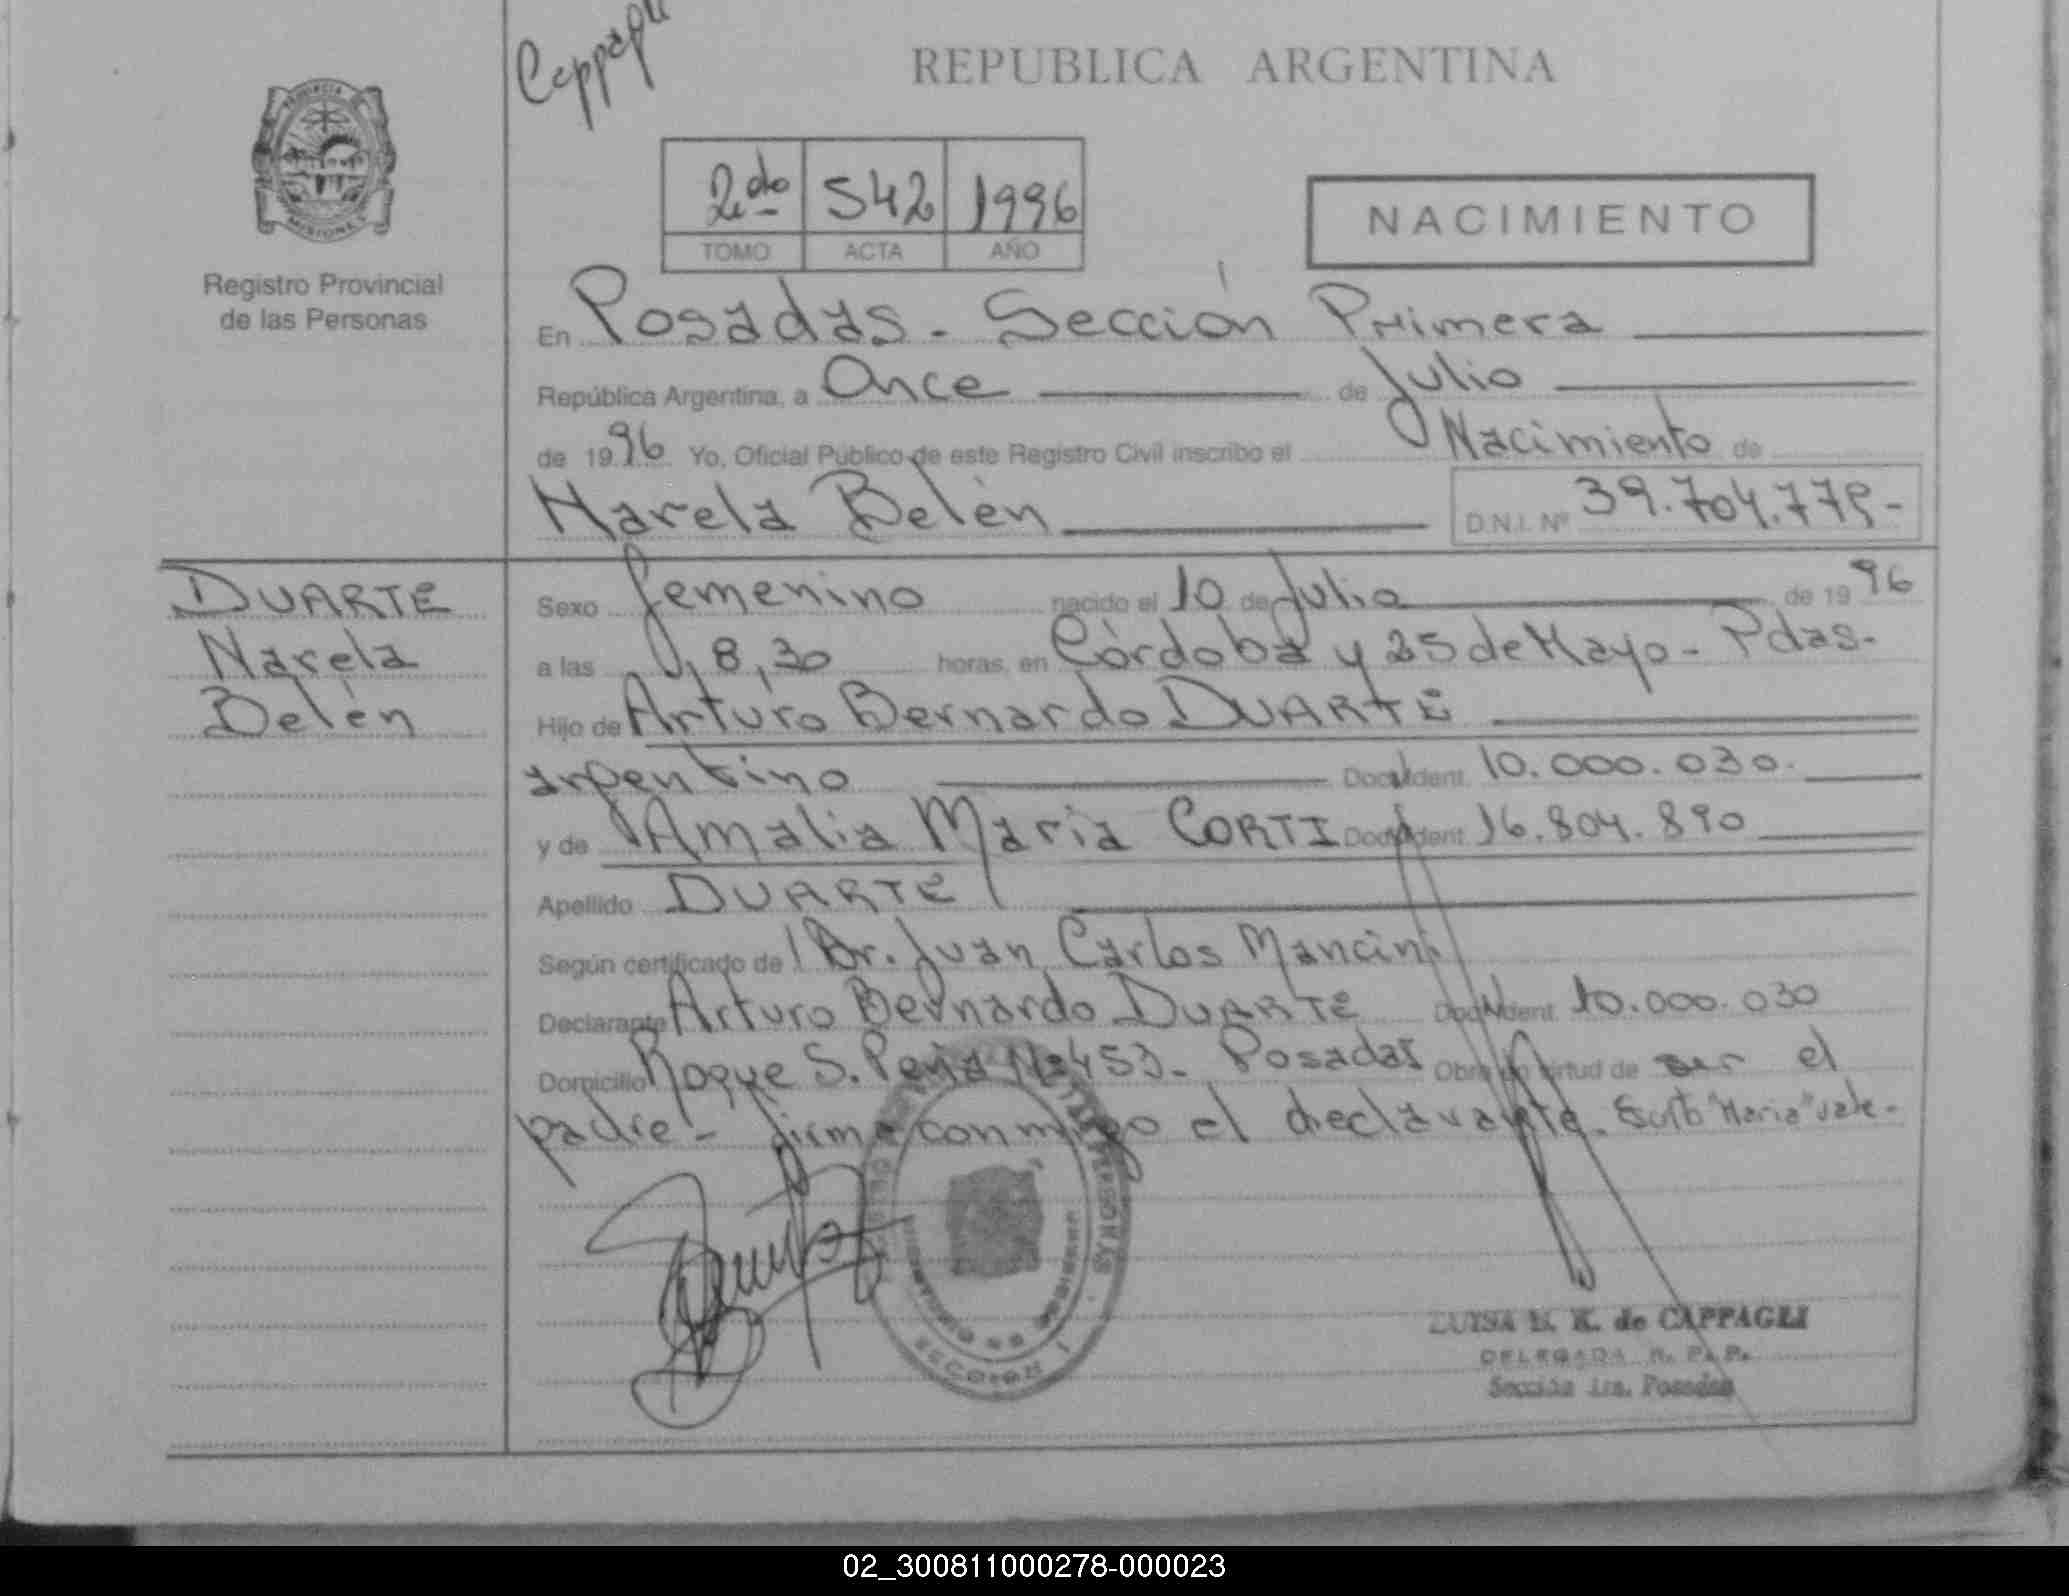 Cappagli
REPUBLICA ARGENTINA
PROVINCIA DE MISIONES
2do 542 1996
TOMO ACTA AÑO
NACIMIENTO
Registro Provincial
de las Personas
En Posadas. Sección Primera
República Argentina, a Once de Julio
de 1996 Yo, Oficial Público de este Registro Civil inscribo el Nacimiento de
Narela Belén D.N.I. Nº 39.704.779-
DUARTE
Narela
Belén
Sexo femenino nacido el 10 de Julio de 1996
a las 8,30 horas, en Córdoba y 25 de Mayo - Pdas.
Hijo de Arturo Bernardo DUARTE
argentino Doc. Ident. 10.000.030.
y de Amalia Maria CORTI Doc. Ident. 16.804.890
Apellido DUARTE
Según certificado de Dr. Juan Carlos Mancini
Declarante Arturo Bernardo DUARTE Doc. Ident. 10.000.030
Domicilio Roque S. Peña Nº 453. Posadas Obra en virtud de ser el
padre.- firma conmigo el declarante. "Maria" vale-
SECCION 1
LUISA M. K. de CAPPAGLI
DELEGADA R. P. P.
Sección 1ra. Posadas
02_300811000278-000023